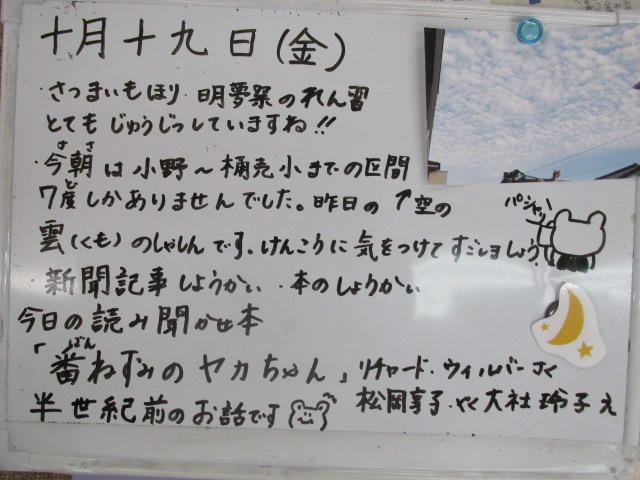 十月十九日(金)
・さつまいもほり・明夢祭のれん習
とてもじゅうじつしていますね!!
・今朝は小野～桶売小までの区間
けさ
7度しかありませんでした。昨日の↑空の
ど
雲(くも)のしゃしんです。けんこうに気をつけてすごしましょう。
パシャッ
・新聞記事しょうかい・本のしょうかい
今日の読み聞かせ本
「番ねずみのヤカちゃん」リチャード・ウィルバーさく
ばん
松岡享子・やく大社玲子え
半世紀前のお話です